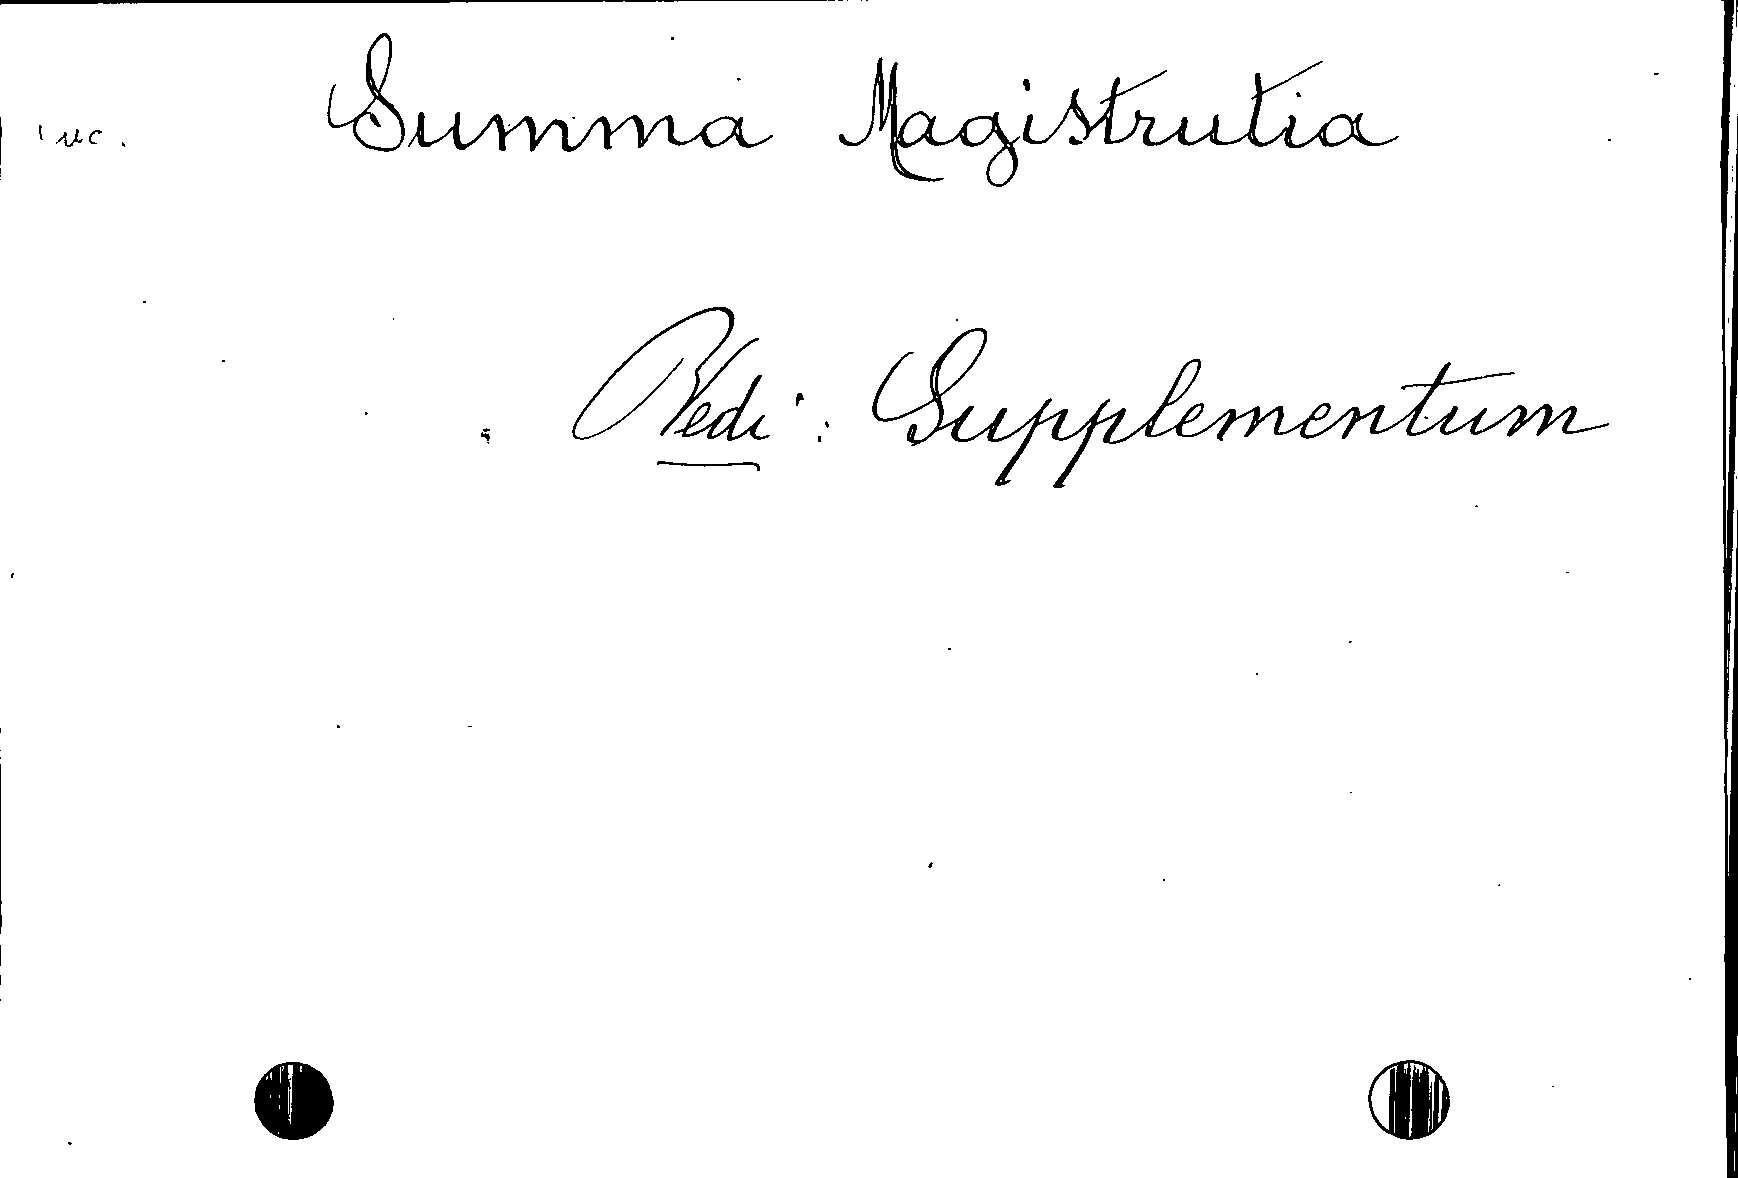 inc. Summa Magistrutia
Vedi: Supplementum